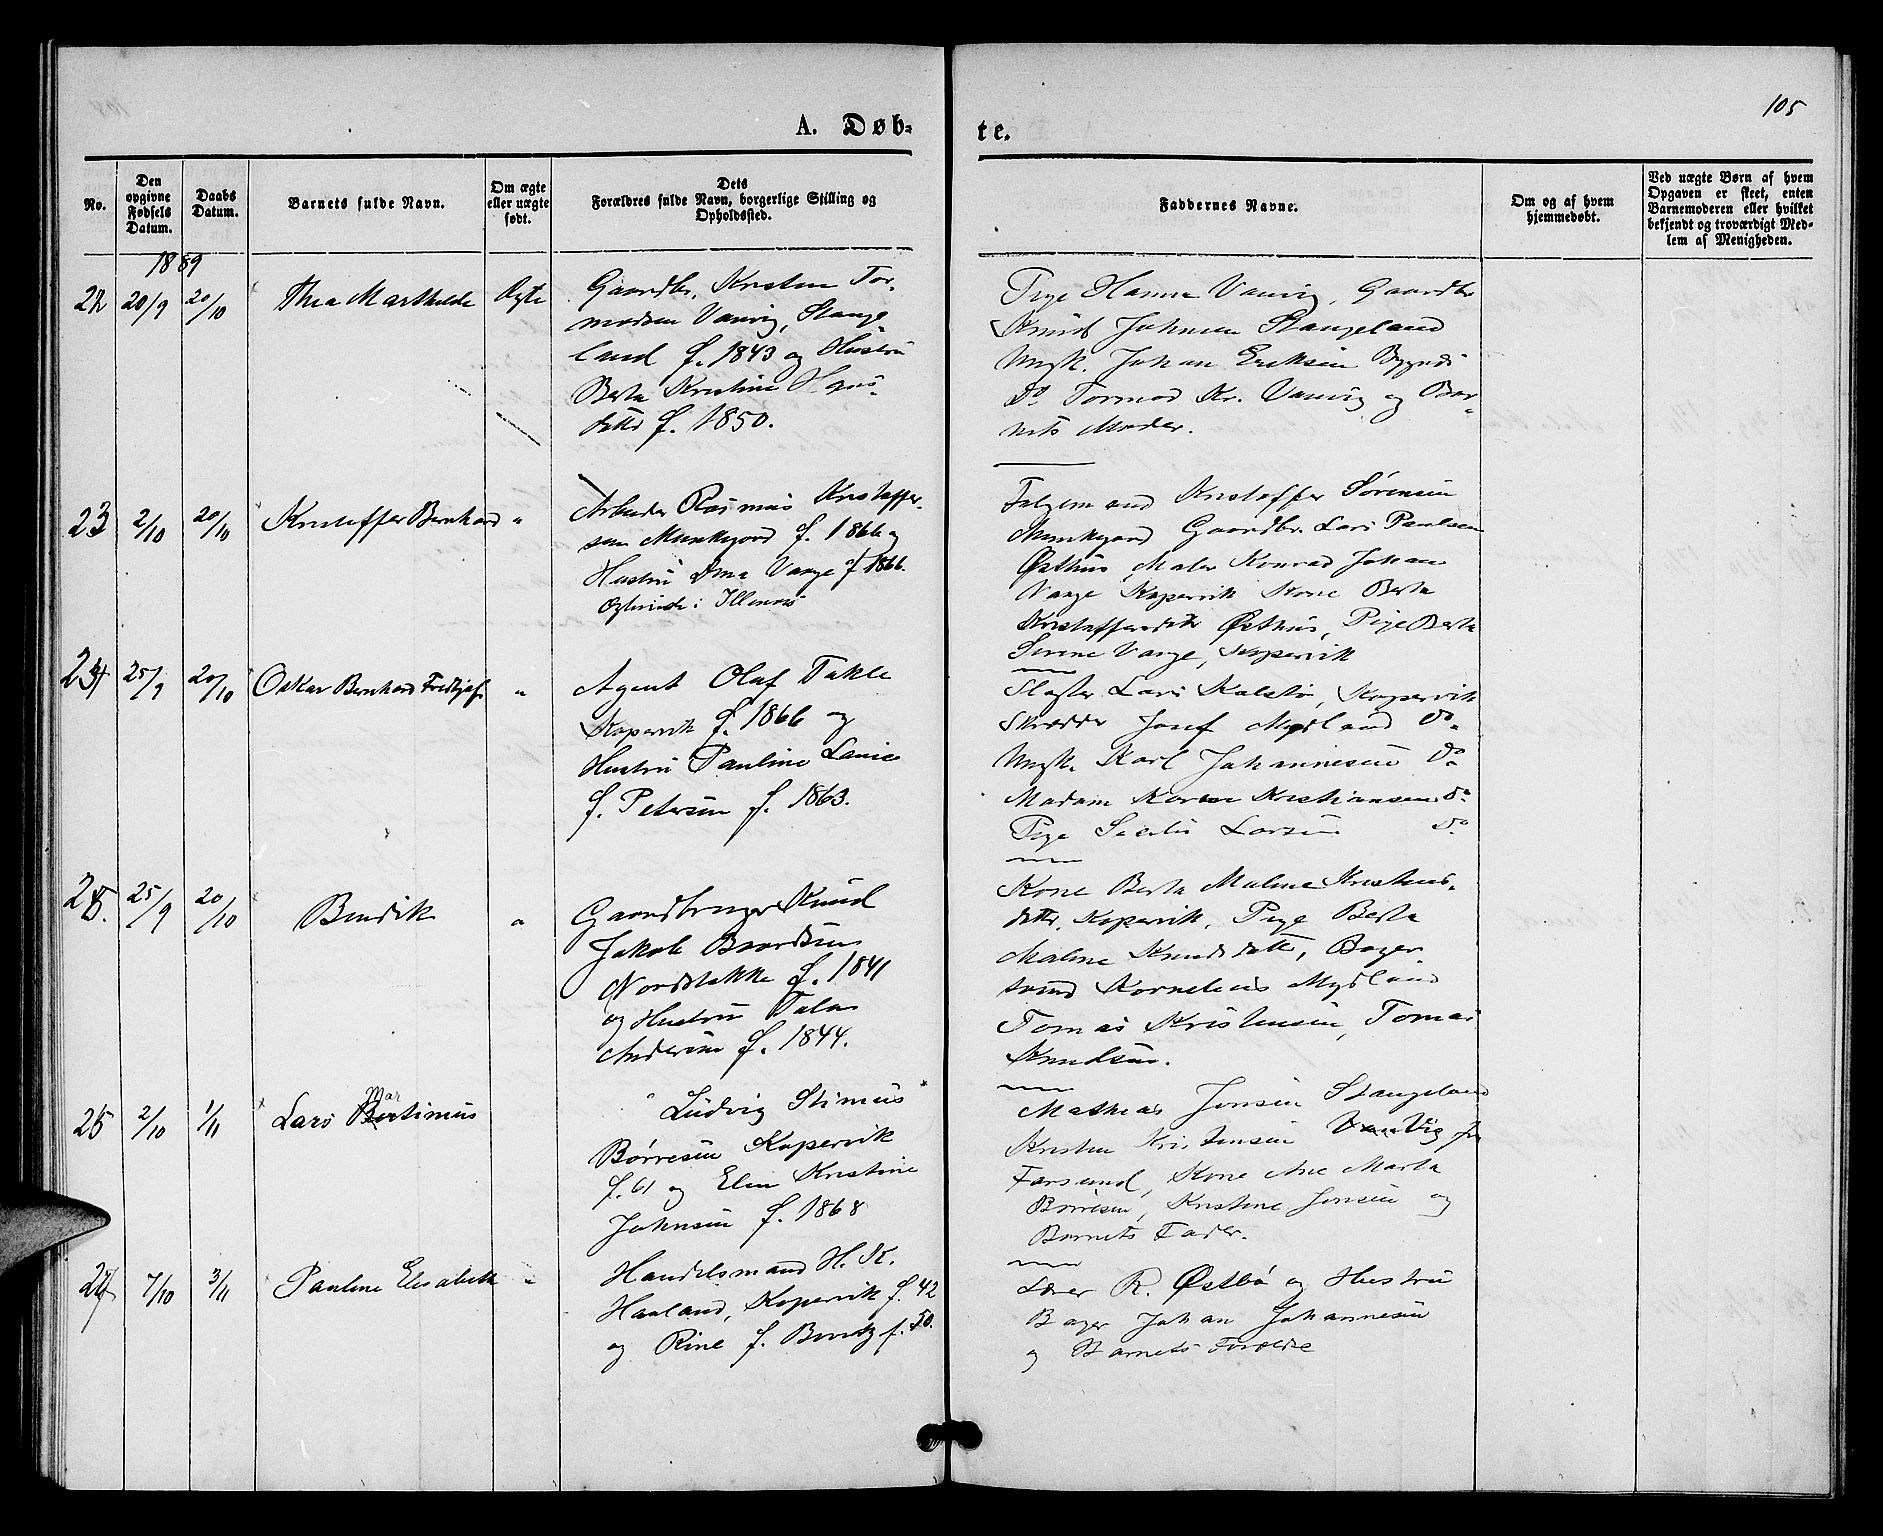 105
A. Døb-
te.
No.
Den opgivne Fødsels Datum.
Daabs Datum.
Barnets fulde Navn.
Om ægte eller uægte født.
Dets Forældres fulde Navn, borgerlige Stilling og Opholdssted.
Faddernes Navne.
Om og af hvem hjemmedøbt.
Ved uægte Børn af hvem Opgaven er skeet, enten Barnemoderen eller hvilket bekjendt og troværdigt Medlem af Menigheden.
1889
22 20/9 20/10 Thea Marthilde Ægte
Gaardbr. Kristen Tor-
modsen Vanvig, Stange-
land f. 1843 og Hustru
Berta Kristine Hans-
datter f. 1850.
Pige Hanna Vanvig, Gaardbr
Knud Johnsen Stangeland
Ungk. Johan Eriksen
Do Tormod Kr. Vanvig og Bar-
nets Moder.
23 2/10 20/10 Kristoffer Bernhard "
Arbeider Rasmus Kristoffer-
sen Munkejord f. 1866 og
Hustru Vange f 1866.
i Illenois
Kristoffer Sørensen
Munkejord Gaardbr. Lars Paulsen
Østhus Maler Konrad Johan
Vange Kopervik Kone Berta
Kristoffersdtr Østhus, Pige Berta
Serene Vange, Kopervik
24 25/9 20/10 Oskar Bernhard Fredtjof "
Agent Olaf Takle
Kopervik f. 1866 og
Hustru Pauline Lavie
f. Petersen f. 1863.
Slagter Lars Kalstø, Kopervik
Skrædder Josef Mydland Do.
Ungk. Karl Johannesen Do
Madam Karen Kristiansen do
Pige Larsen do
25. 25/9 20/10 Bendik "
Gaardbruger Knud
Jakob Baardsen
Nordstokke f. 1841
og Hustru Talas
Andersen f. 1844.
Kone Berta Maline Kristens-
dttr. Kopervik, Pige Berta
Maline Knudsdatt, Bager-
svend Kornelius Mydland
Tomas Kristensen, Tomas
Knudsen.
26 2/10 1/11 Lars Bertinius Mar
" Ludvig Stimus
Børresen Kopervik
f. 61 og Elen Kristine
Johnsen f. 1868
Mathias Jonsen Stangeland
Kristen Kristensen Vanvig fra
Farsund, Kone Ane Marta
Børresen, Kristine Jonsen og
Barnets Fader.
27 7/10 3/11 Pauline Elisabeth "
Handelsmand H. K.
Haaland, Kopervik f. 42
og Rine f. f. 50.
Lærer R. Østbø og Hustru
Bager Johan Johannesen
og Barnets Forældre